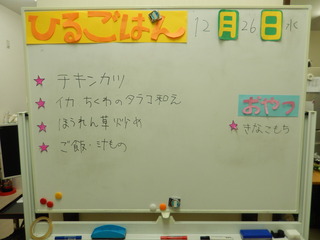 ひるごはん 12月26日 水
チキンカツ
イカ ちくわのタラコ和え
ほうれん草炒め
ご飯・汁もの
おやつ
きなこもち